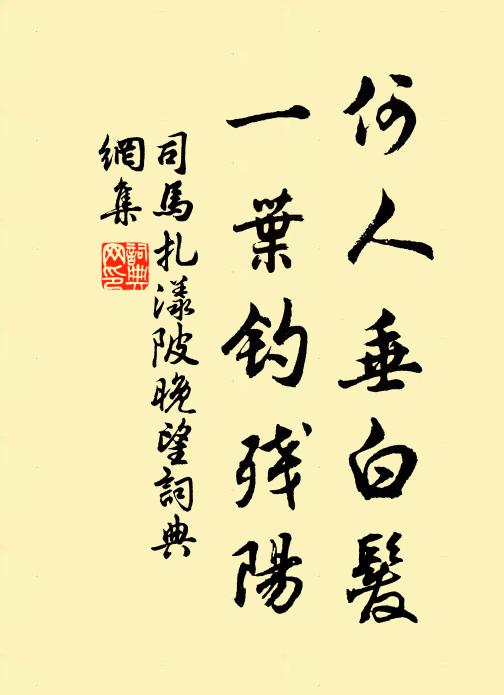 何人垂白髮
一葉釣残陽
司馬扎漾陂晚望詞典
網集
詞典网印